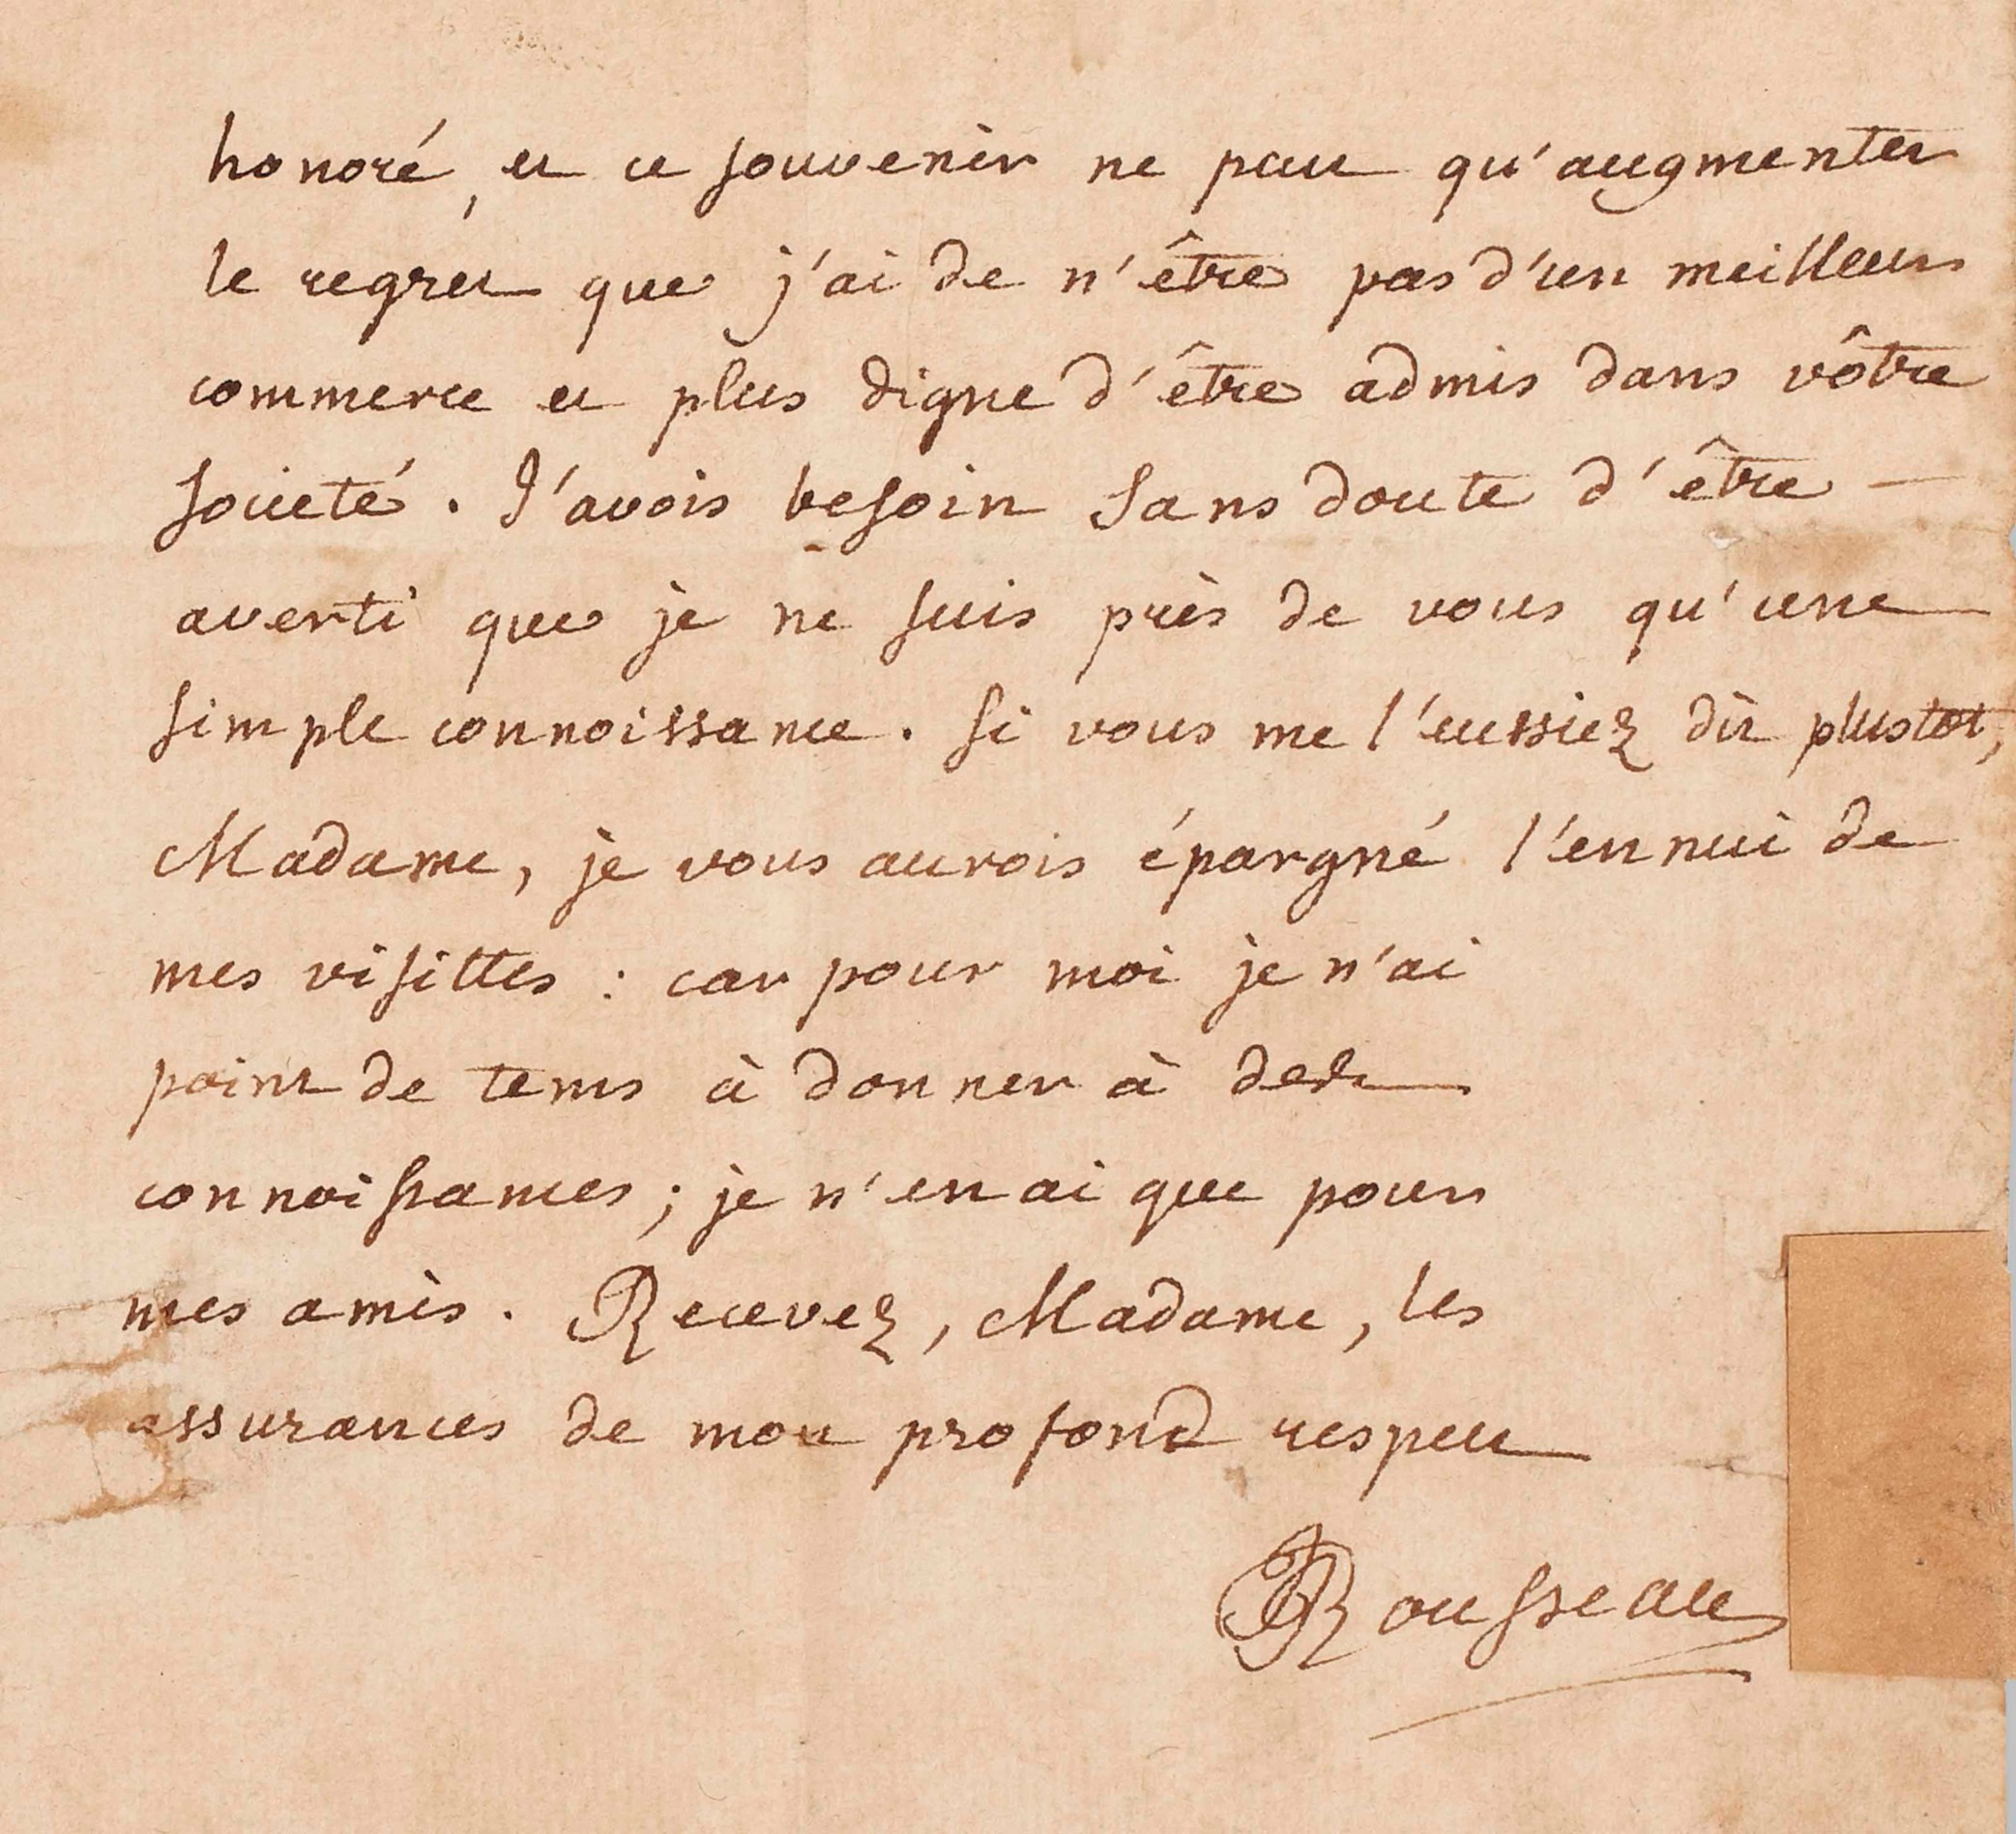 honoré, et ce souvenir ne peut qu'augmenter
le regret que j'ai de n'être pas d'un meilleur
commerce et plus digne d'être admis dans vôtre
societé. J'avois besoin sans doute d'être
averti que je ne suis près de vous qu'une
simple connoissance. si vous me l'eussiez dit plustot,
Madame, je vous aurois épargné l'ennui de
mes visittes : car pour moi je n'ai
point de tems à donner à des
connoissances ; je n'en ai que pour
mes amis. Recevez, Madame, les
assurances de mon profond respect
JJRousseau